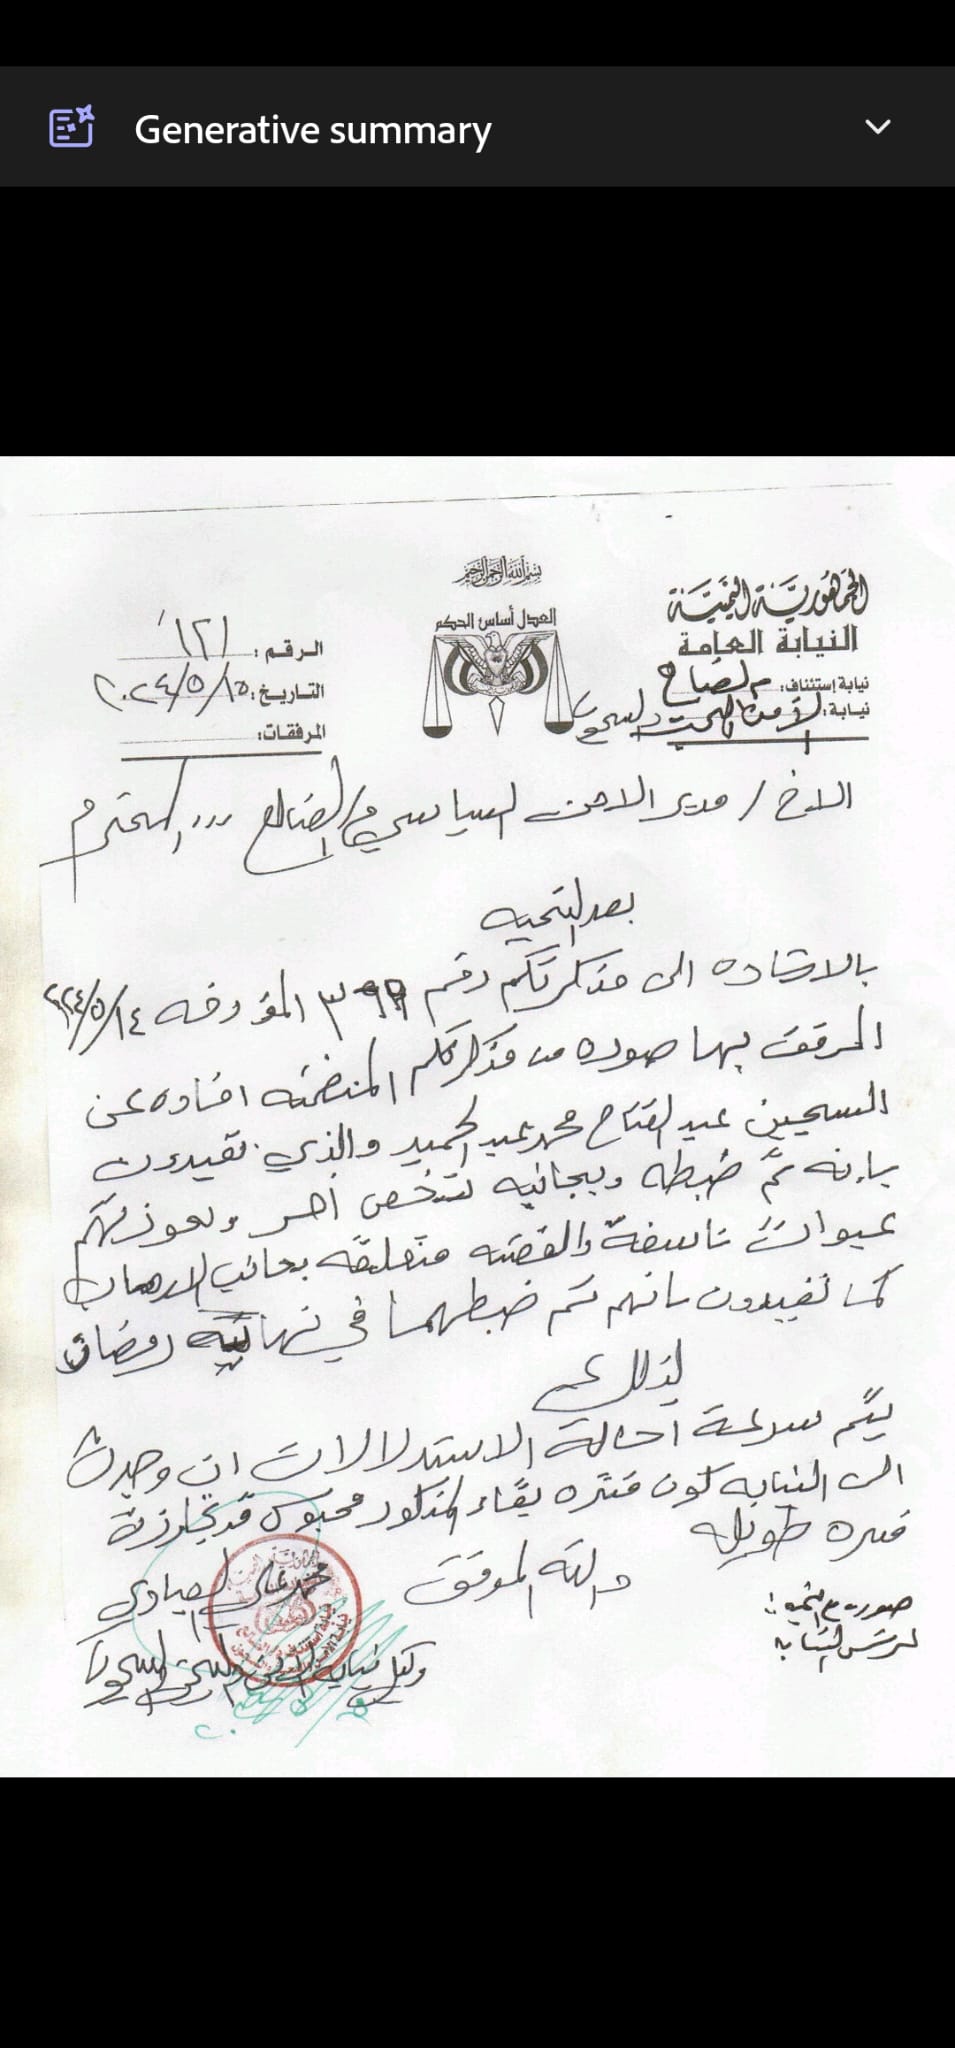 Generative summary
بسم الله الرحمن الرحيم
الجمهورية اليمنية
النيابة العامة
نيابة إستئناف: م الضالع
نيابة: الأمن والبحث والسجون
العدل أساس الحكم
الرقم: ١٢١
التاريخ: ٢٠٢٤/٥/١٥
المرفقات:
الاخ / مدير الامن السياسي م/ الضالع ... المحترم
بعد التحيه
بالاشاره الى مذكرتكم رقم ٣٩٩ المؤرخه ٢٠٢٤/٥/١٤
المرفق بها صوره من مذكرتكم المتضمنه افاده عن
السجين عبد الفتاح محمد عبد الحميد والذي تفيدون
بإنه تم ضبطه وبجانبه شخص أخر وبحوزتهم
عبوات ناسفة والقضيه متعلقة بجانب الارهاب
كما تفيدون بانهم تم ضبطهما في نهاية رمضان
لذلك
يتم سرعة احالة الاستدلالات ان وجدت
الى النيابه كون فتره بقاء المذكور محبوس قد تجاوزت
فتره طويله
والله الموفق
صورت مع التحيه:
لرئيس النيابه
محمد علي الصيادي
وكيل نيابة الامن والبحث والسجون